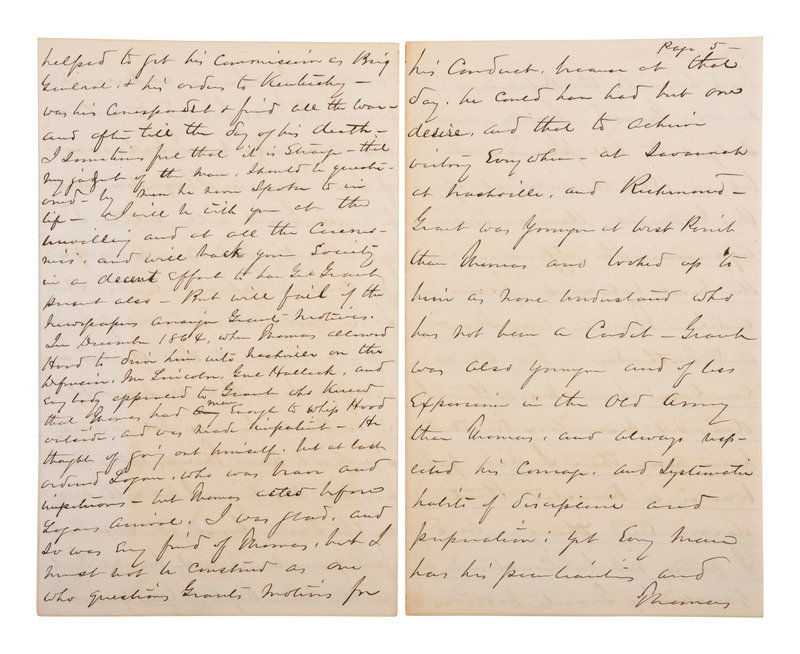 helped to get his Commission as Brig
General, & his orders to Kentucky -
was his Correspondent & friend all the war -
and after till the day of his death. -
I sometimes feel that it is Strange - that
my judgt of the man, should be questi-
oned - by men he never Spoke to in
life - I will be with you at the
unveiling and at all the Ceremo-
nies, and will back your Society
in a decent Effort to have Genl Grant
present also - But will fail if the
Newspapers arraign Grants motives.
In December 1864, when Thomas allowed
Hood to drive him into Nashville on the
defensive, Mr Lincoln, Genl Halleck, and
Every body appealed to Grant who knew
that Thomas had men Enough to whip Hood
outside, and was made impatient - He
thought of going out himself, but at last
ordered Logan, who was brave and
impetuous - but Thomas acted before
Logans arrival. I was glad, and
so was Every friend of Thomas, but I
must not be construed as one
who questions Grants motives for
Page 5 -
his Conduct, because at that
day, he could have had but one
desire, and that to achieve
victory Everywhere - at Savannah
at Nashville, and Richmond -
Grant was Younger at West Point
than Thomas and looked up to
him as none understand who
has not been a Cadet - Grant
was also younger and of less
Experience in the Old Army
than Thomas, and always resp-
ected his Courage, and Systematic
habits of discipline and
preparation; yet Every man
has his peculiarities and
Thomas